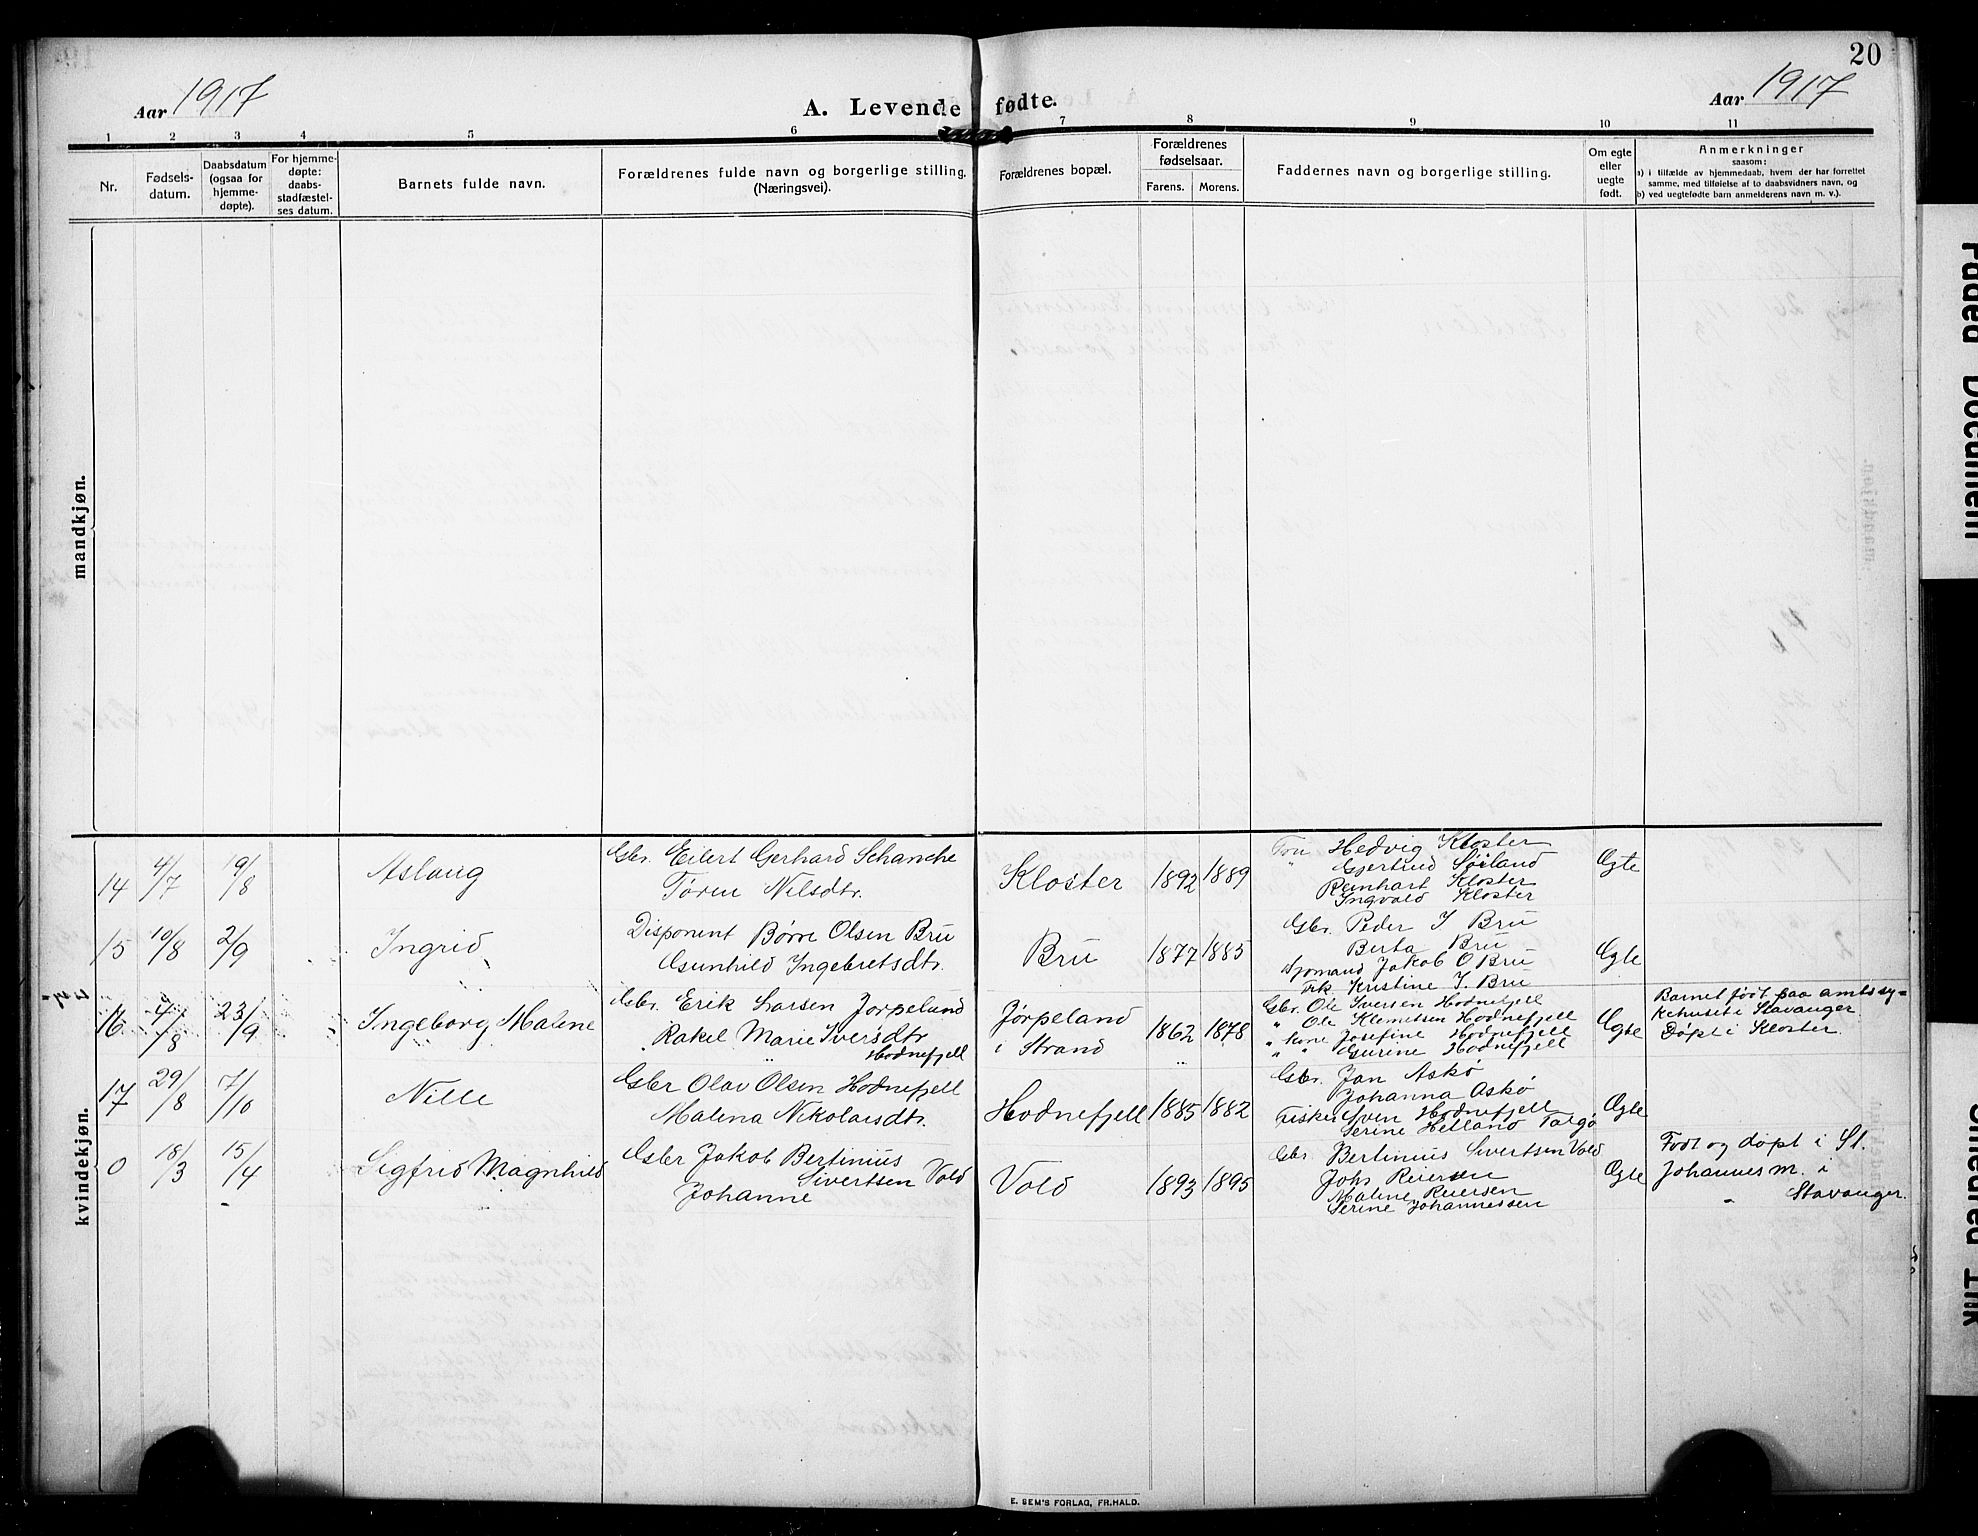 20
Aar 1917
A. Levende fødte.
Aar 1917
1 2 3 4 5 6 7 8 9 10 11
Nr.
Fødsels-
datum.
Daabsdatum
(ogsaa for
hjemme-
døpte).
For hjemme-
døpte:
daabs-
stadfæstel-
ses datum.
Barnets fulde navn.
Forældrenes fulde navn og borgerlige stilling.
(Næringsvei).
Forældrenes bopæl.
Forældrenes
fødselsaar.
Farens. Morens.
Faddernes navn og borgerlige stilling.
Om egte
eller
uegte
født.
Anmerkninger
saasom:
a) i tilfælde av hjemmedaab, hvem der har forrettet
samme, med tilføielse af to daabsvidners navn, og
b) ved uegtefødte barn anmelderens navn m. v.).
mandkjøn.
kvindekjøn.
14 4/7 19/8 Aslaug
Gbr. Eilert Gerhard Schanche
Tøren Nilsdtr.
Kloster 1892 1889
Frn Hedvig Kloster
" Gjertrud Søiland
Reinhart Kloster
Ingvald Kloster
Ægte
15 10/8 2/9 Ingrid
Disponent Børre Olsen Bru
Gunhild Ingebretsdtr.
Bru 1877 1885
Gbr. Peder I Bru
Berta Bru
Sjømand Jakob O Bru
Frk Kristine I. Bru
Ægte
16 4/8 23/9 Ingeborg Malene
Gbr. Erik Larsen Jørpeland
Rakel Marie Iversdtr
Hodnefjell
Jørpeland
i Strand
1862 1878
Gbr. Ole Iversen Hodnefjell
" Ole Klemetsen Hodnefjell
" Kone Josefine Hodnefjell
" " Gurine Hodnefjell
Ægte
Barnet født paa amtssy=
kehuset i Stavanger
Døpt i Kloster.
17 29/8 7/10 Nille
Gbr Olav Olsen Hodnefjell
Malena Nikolaisdtr.
Hodnefjell 1885 1882
Gbr. Jan Askø
Johanna Askø
Fisker Sven Hodnefjell
Serine Helland Talgø
Ægte
0 18/3 15/4 Sigfrid Magnhild
Gbr Jakob Bertinius
Sivertsen Vold
Johanne
Vold 1893 1895
Gbr Bertinius Sivertsen Vold
Johs Reiersen
Maline Reiersen
Serine Johannessen
Ægte
Født og døpt i St.
Johannes m. i
Stavanger.
E. SEM'S FORLAG, FR.HALD.
Faded Document
Smeared Ink